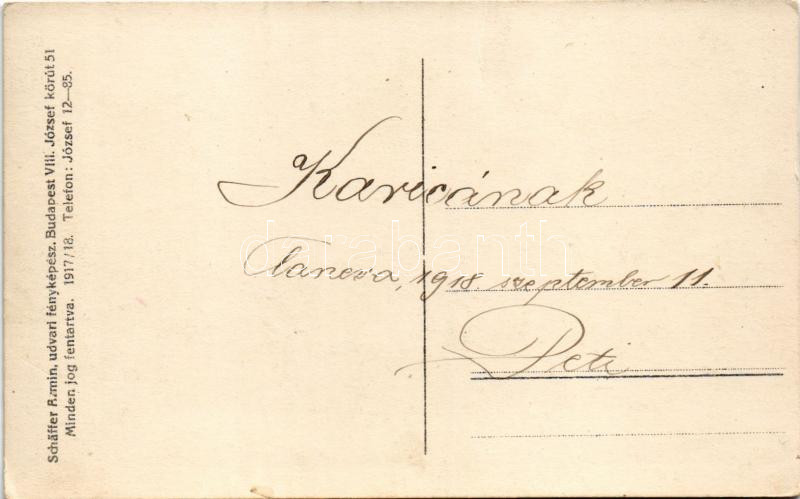 Schäffer Ármin, udvari fényképész. Budapest VIII. József körút 51
Minden jog fentartva. 1917/18. Telefon: József 12—85.
Karicának
1918. szeptember 11.
Peti
darabanth